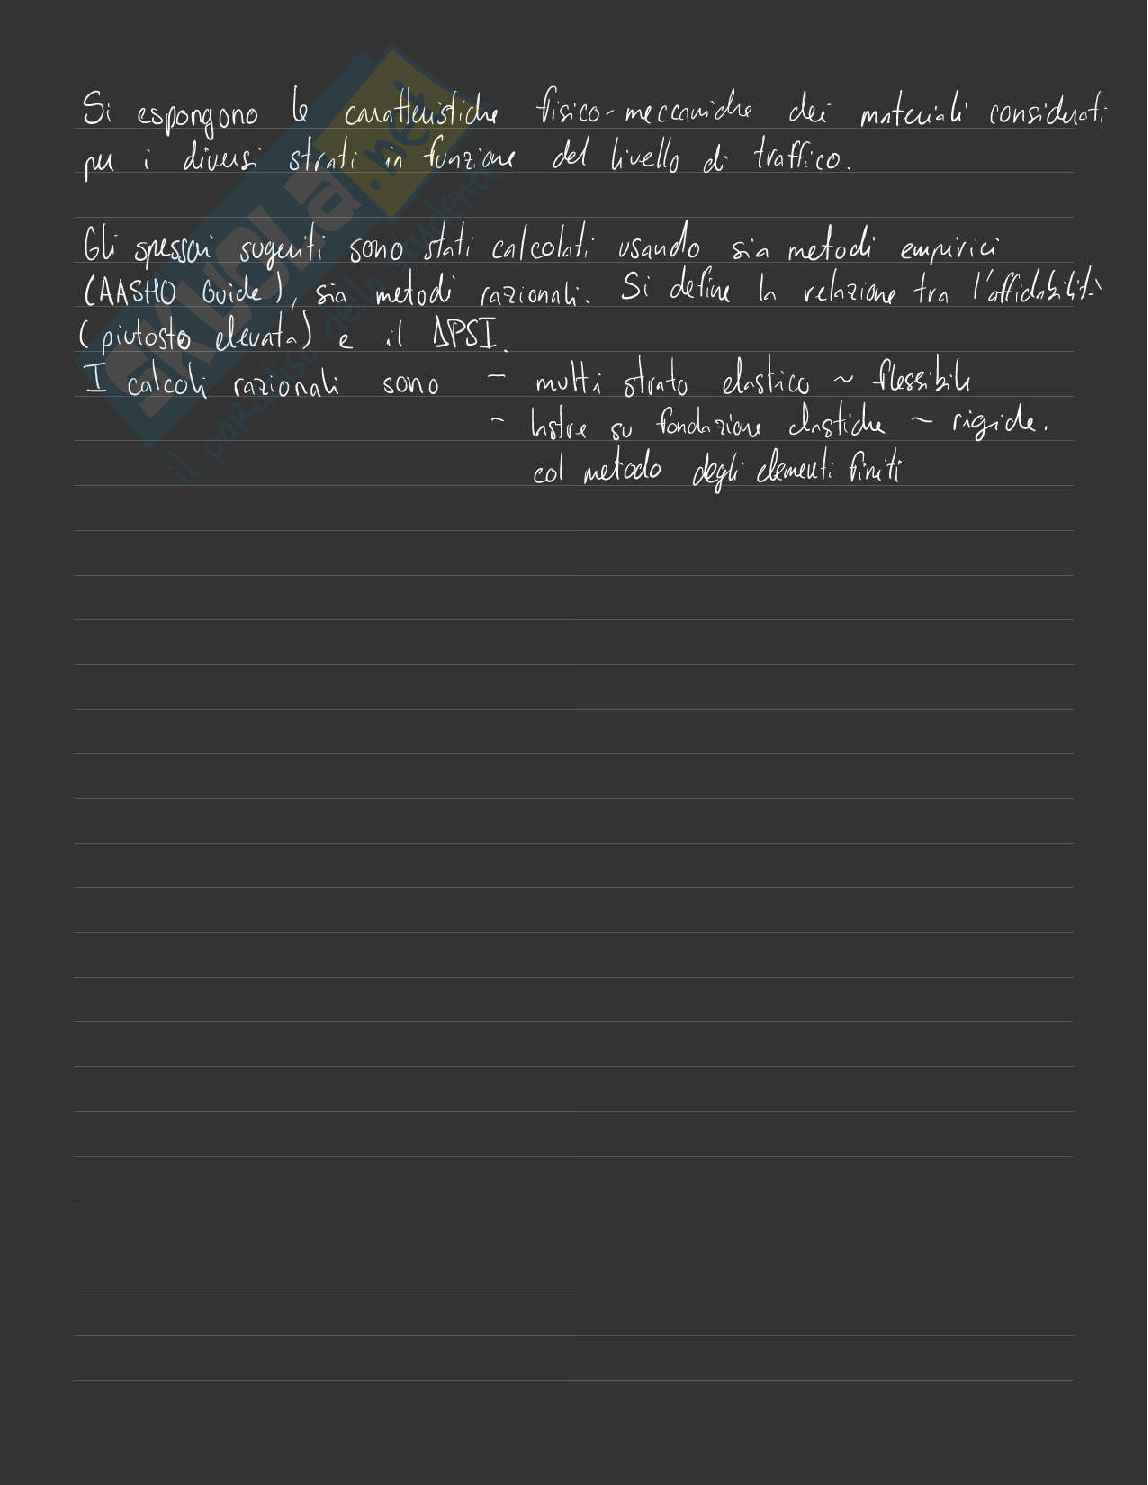 Si espongono le caratteristiche fisico-meccaniche dei materiali considerati
per i diversi strati in funzione del livello di traffico.
Gli spessori sugeriti sono stati calcolati usando sia metodi empirici
(AASHO Guide), sia metodi razionali. Si define la relazione tra l'affidabilità
(piutosto elevata) e il ΔPSI.
I calcoli razionali sono - multi strato elastico ~ flessibili
- lastre su fondazione elastiche ~ rigide.
col metodo degli elementi finiti
SKUOLA.net